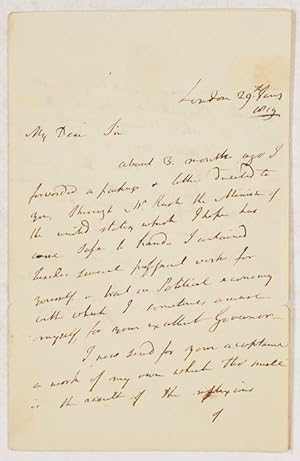 London 29th Jany
1819
My Dear Sir
about 3 months ago I
forwarded a package & letter directed to
you, through Mr Rush the Minister of
the united states which I hope has
come safe to hand. I contained
besides several work for
yourself a tract on Political economy
with which I sometimes amuse
myself for your excellent Governor
I now send for your acceptance
a work of my own which tho small
is the result of the reflexions
of